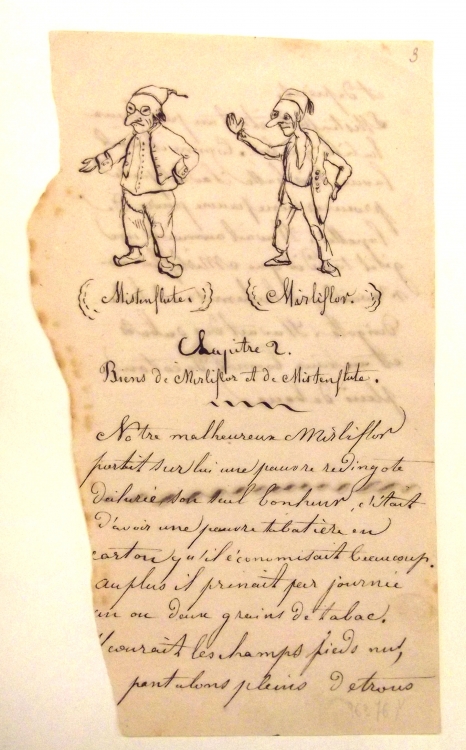 3
(Mistenflute.) (Mirliflor.)
Chapitre 2.
Buns de Mirliflor et de Mistenflute.
Notre malheureux Mirliflor
portait sur lui une pauvre redingote
son seul bonheur, c'était
d'avoir une pauvre tabatière en
carton qu'il économisait beaucoup.
au plus il prenait par journée
un ou deux grains de tabac.
il courait les champs pieds nus,
pantalons pleins de trous